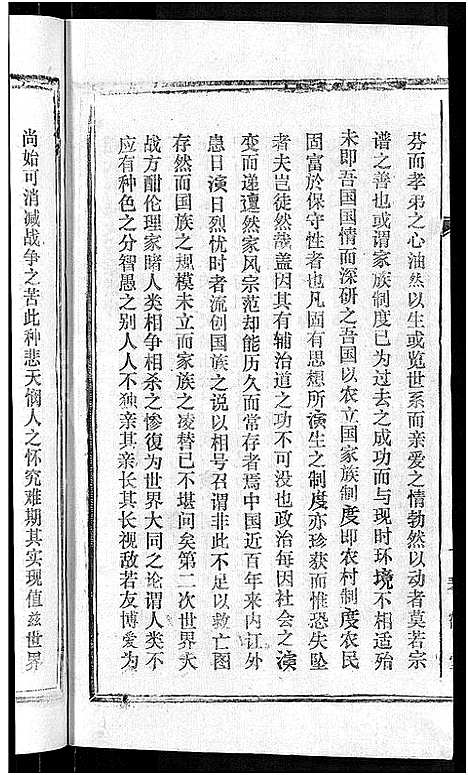 芬而孝弟之心油然以生或览世系而亲爱之情勃然以动者莫若宗
谱之善也或谓家族制度已为过去之成功而与现时环境不相适殆
未即吾国国情而深研之吾国以农立国家族制度即农村制度农民
固富於保守性者也凡固有思想所演生之制度亦珍获而惟恐失坠
者夫岂徒然哉盖因其有辅治道之功不可没也政治每因社会之演
变而递遭然家风宗范却能历久而常存者焉中国近百年来内讧外
患日演日烈忧时者流创国族之说以相号召谓非此不足以救亡图
存然而国族之规模未立而家族之凌替已不堪问矣第二次世界大
战方酣伦理家睹人类相争相杀之惨復为世界大同之论谓人类不
应有种色之分智愚之别人人不独亲其亲长其长视敌若友博爱为
尚始可消滅战争之苦此种悲天悯人之怀究难期其实现值兹世界